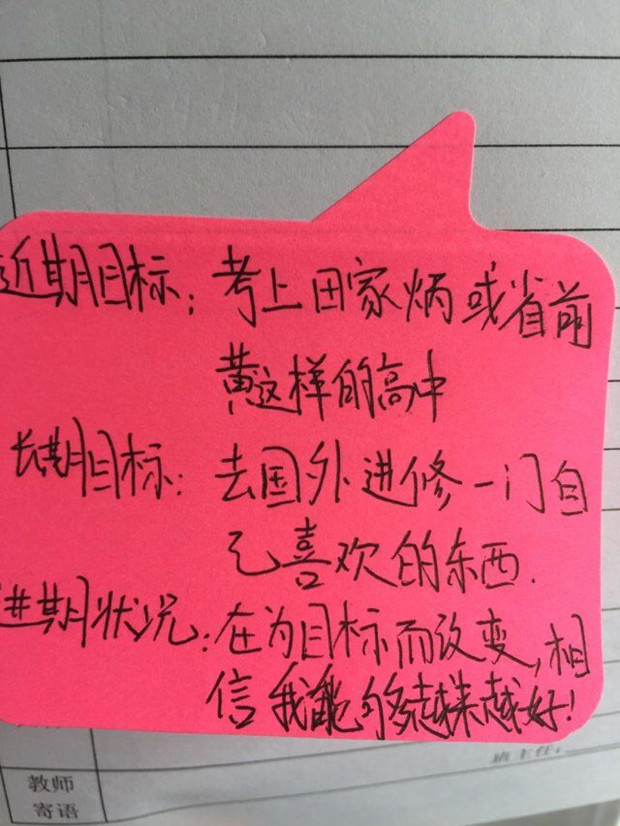 近期目标：考上田家炳或省前
黄这样的高中
长期目标：去国外进修一门自
己喜欢的东西.
进期状况：在为目标而改变,相
信我能够越来越好!
班主任：
教师
寄语